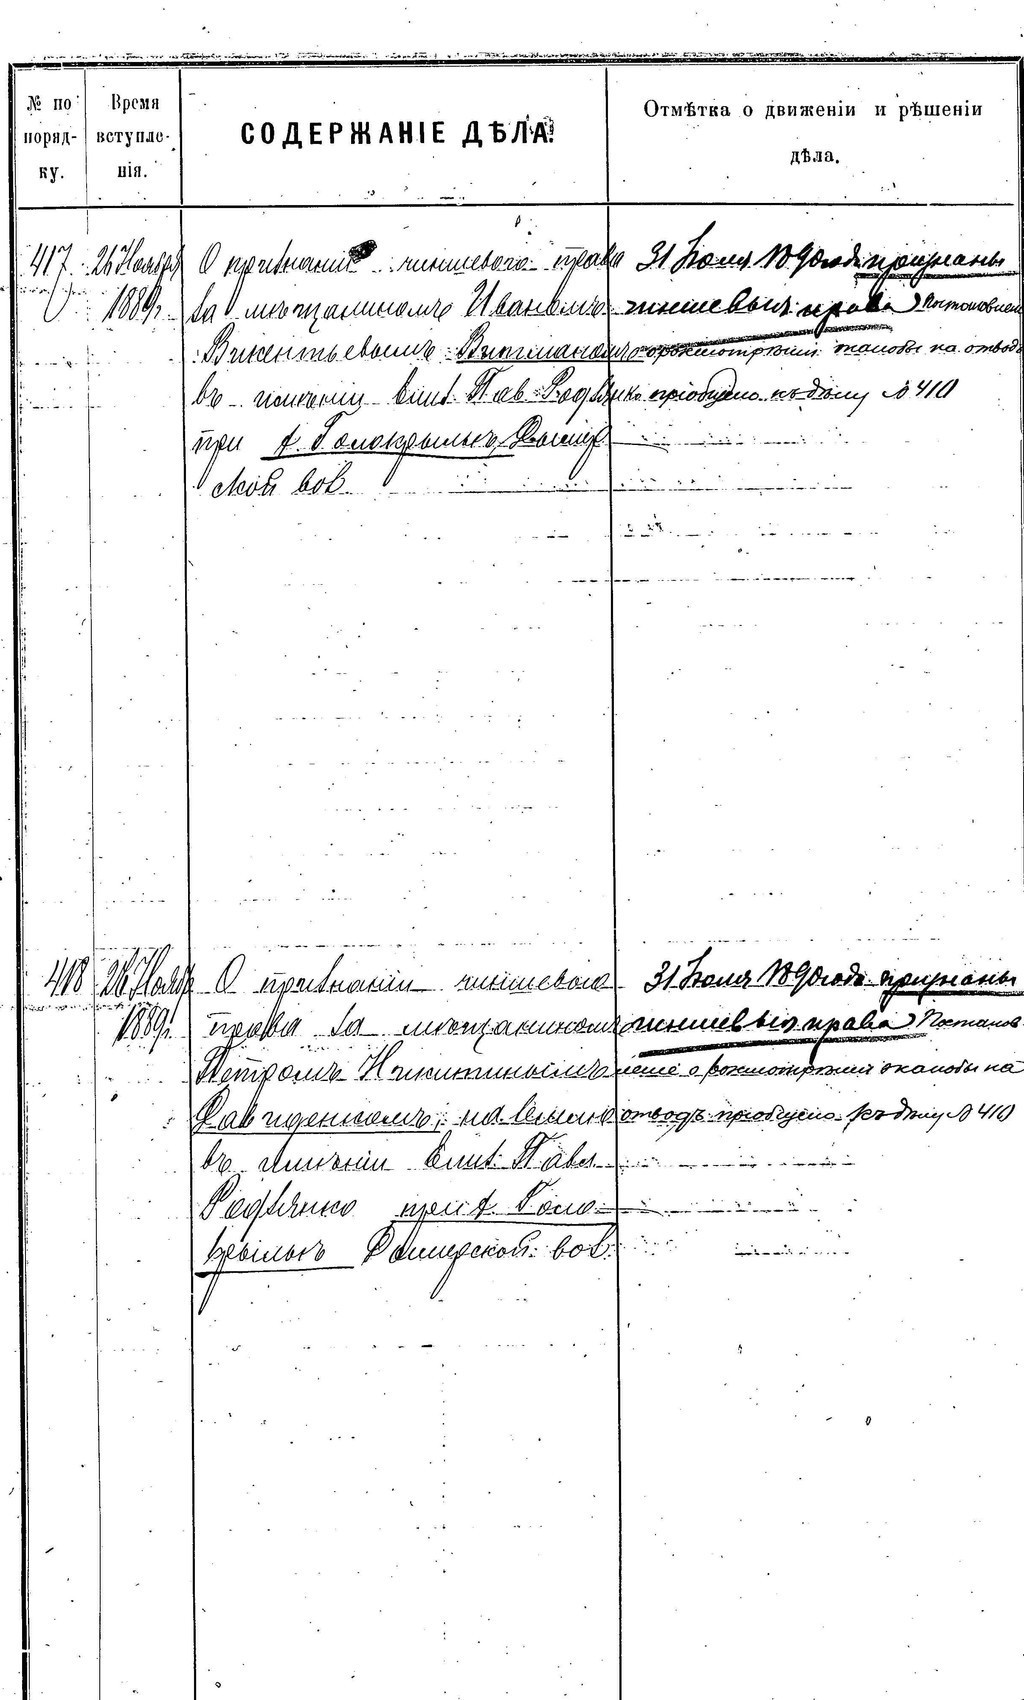 № по
поряд-
ку.
Время
вступле-
нія.
СОДЕРЖАНІЕ ДѢЛА.
Отмѣтка о движеніи и рѣшеніи
дѣла.
417
26 Ноября
1889г.
О признаніи чиншеваго права
за мѣщаниномъ Иваномъ
Викентьевымъ
въ имѣніи Елис. Пав. Родзянко
при д. Голокрыльнъ, Дымер
ской вол.
31 Іюля 1890 года признаны
чиншевыя права) Постановлен
о разсмотрѣніи жалобы на отводъ
пріобщено къ дѣлу № 410
418
26 Нояб
1889г.
О признаніи чиншеваго
права за мѣщаниномъ
Петромъ Никитинымъ
Давиденкомъ, на землю
въ имѣніи Елис. Павл.
Родзянко при д. Голо-
крыльнъ Дымерской вол.
31 Іюля 1890 года признаны
чиншевыя права) Постанов
леніе о разсмотрѣніи жалобы на
отводъ пріобщено къ дѣлу № 410